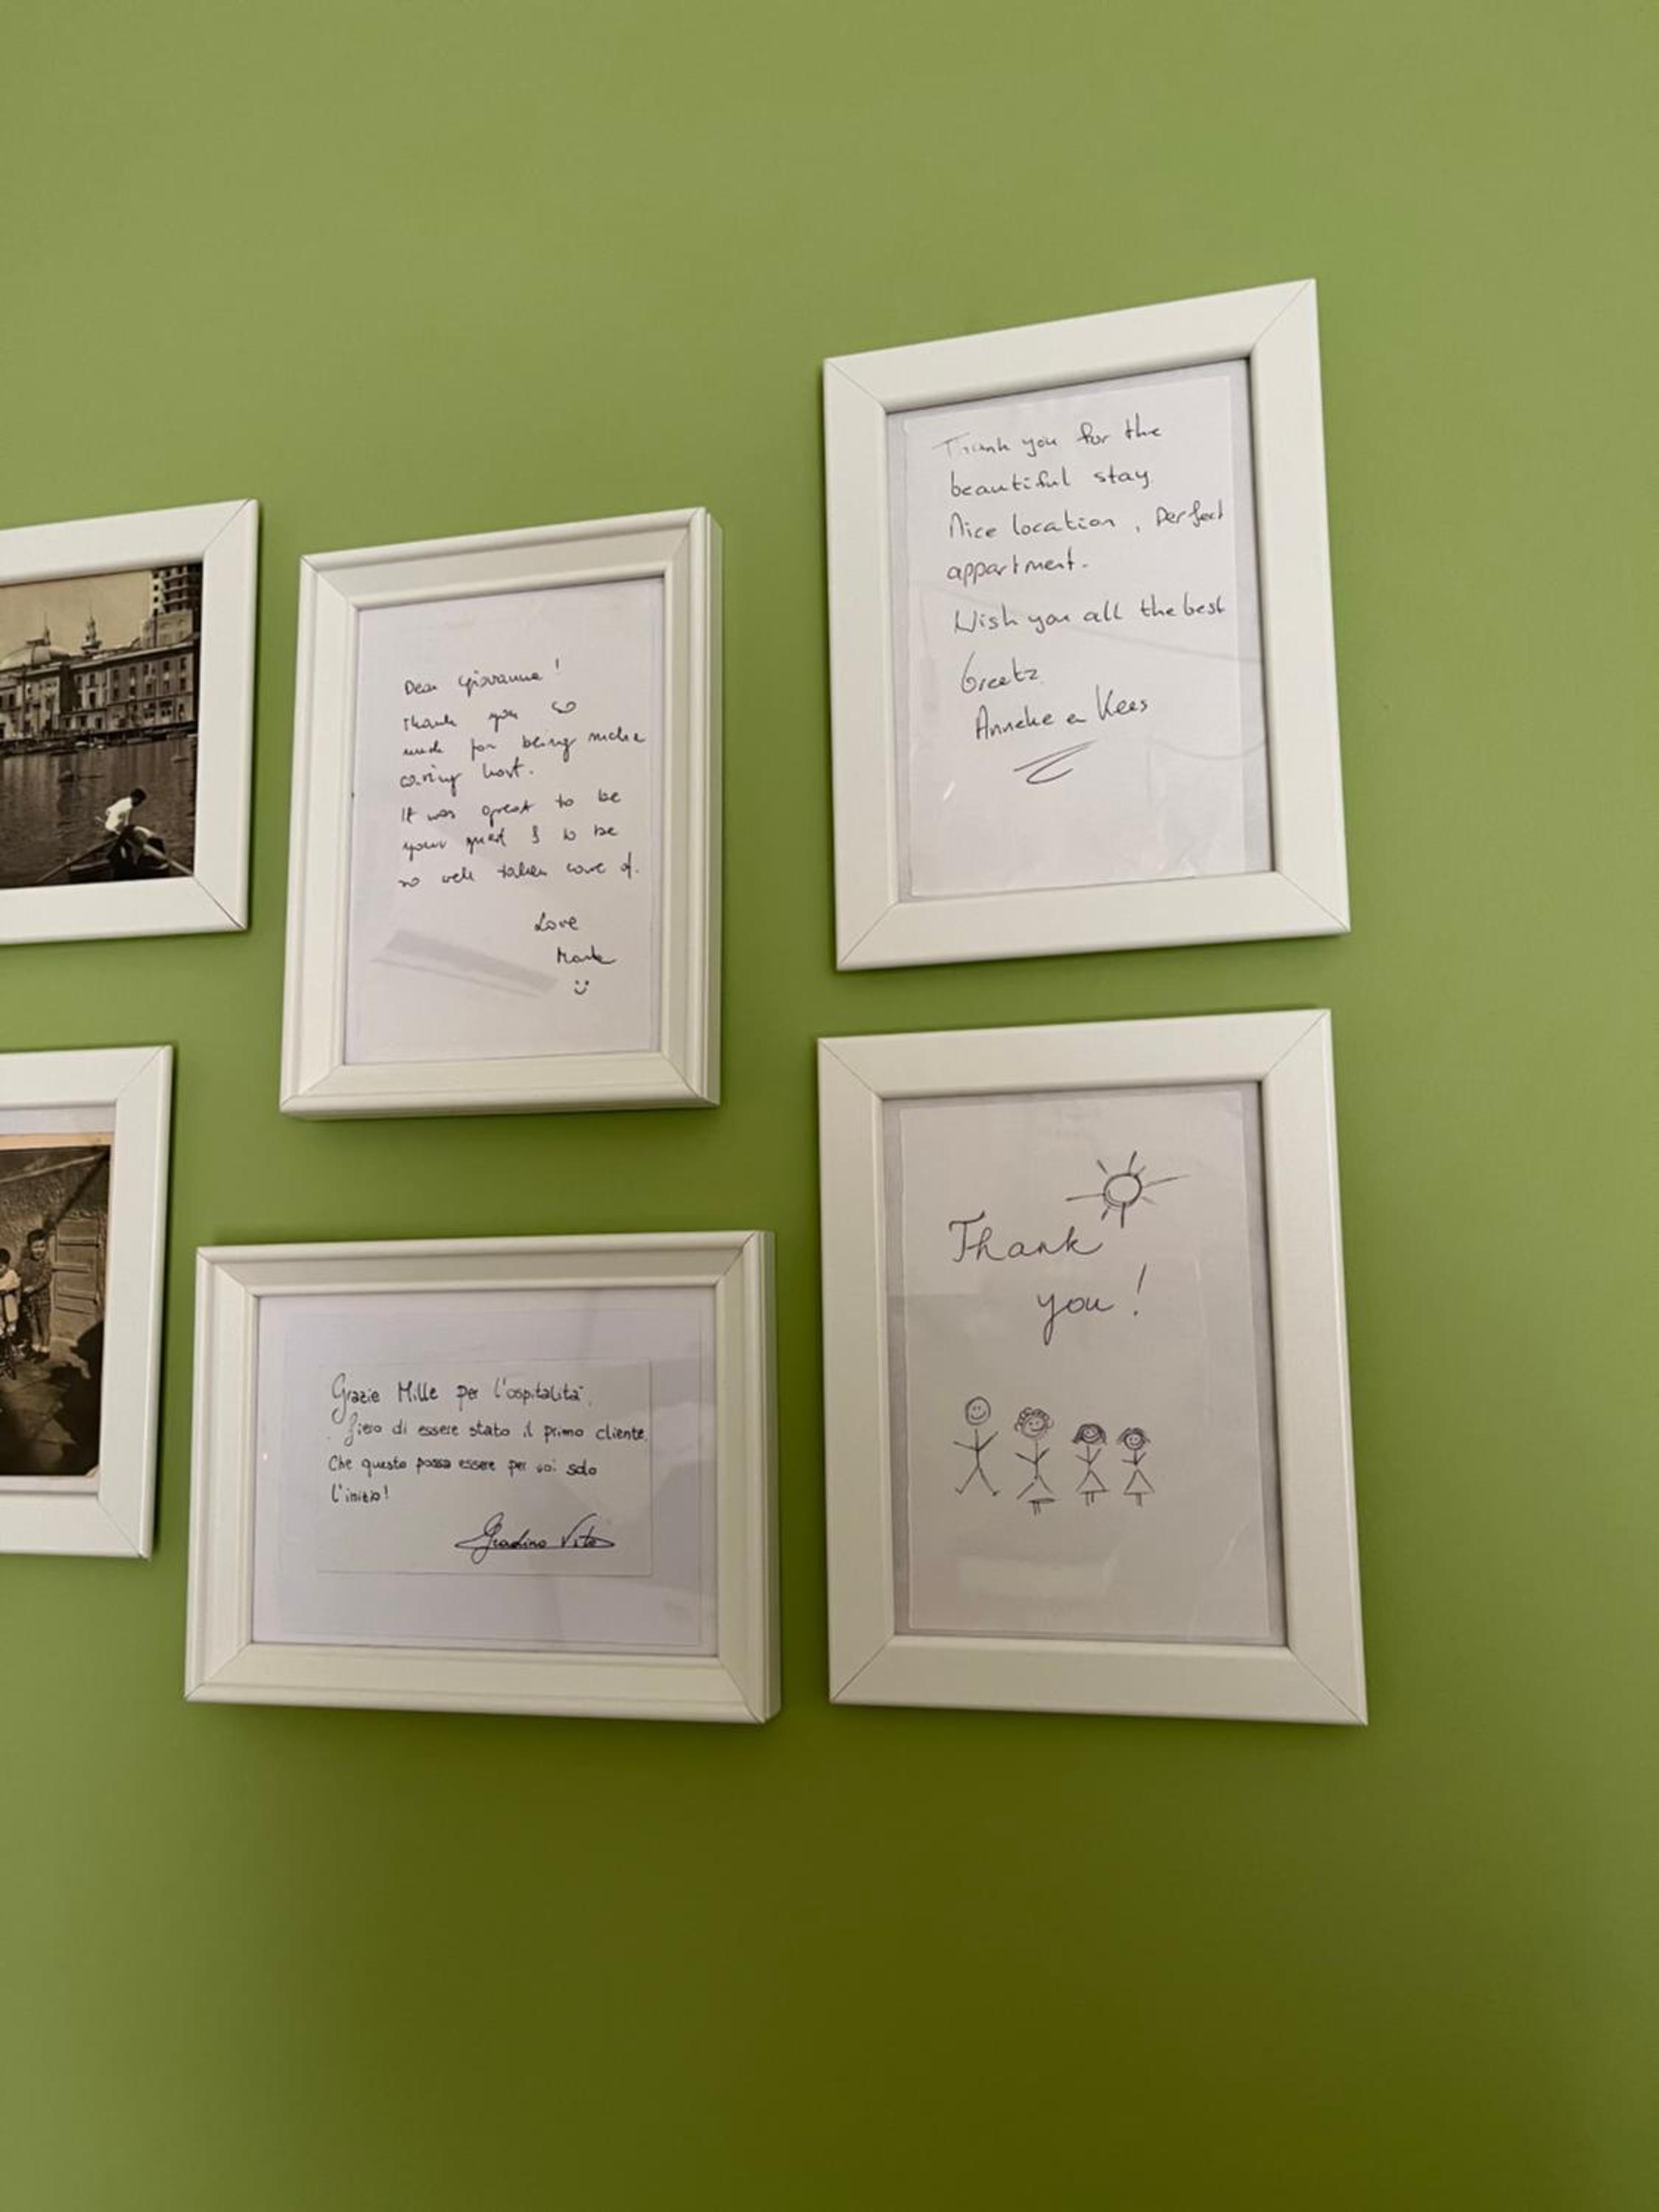 Dear Giovanna!
Thank you so
much for being such a
caring host.
It was great to be
your guest & to be
so well taken care of.
Love
:)
Thank you for the
beautiful stay.
Nice location, Perfect
appartment.
Wish you all the best
Greetz.
Anneke en Kees
Grazie Mille per l'ospitalità,
fiero di essere stato il primo cliente.
Che questo possa essere per voi solo
l'inizio!
Gradino Vito
Thank
you!